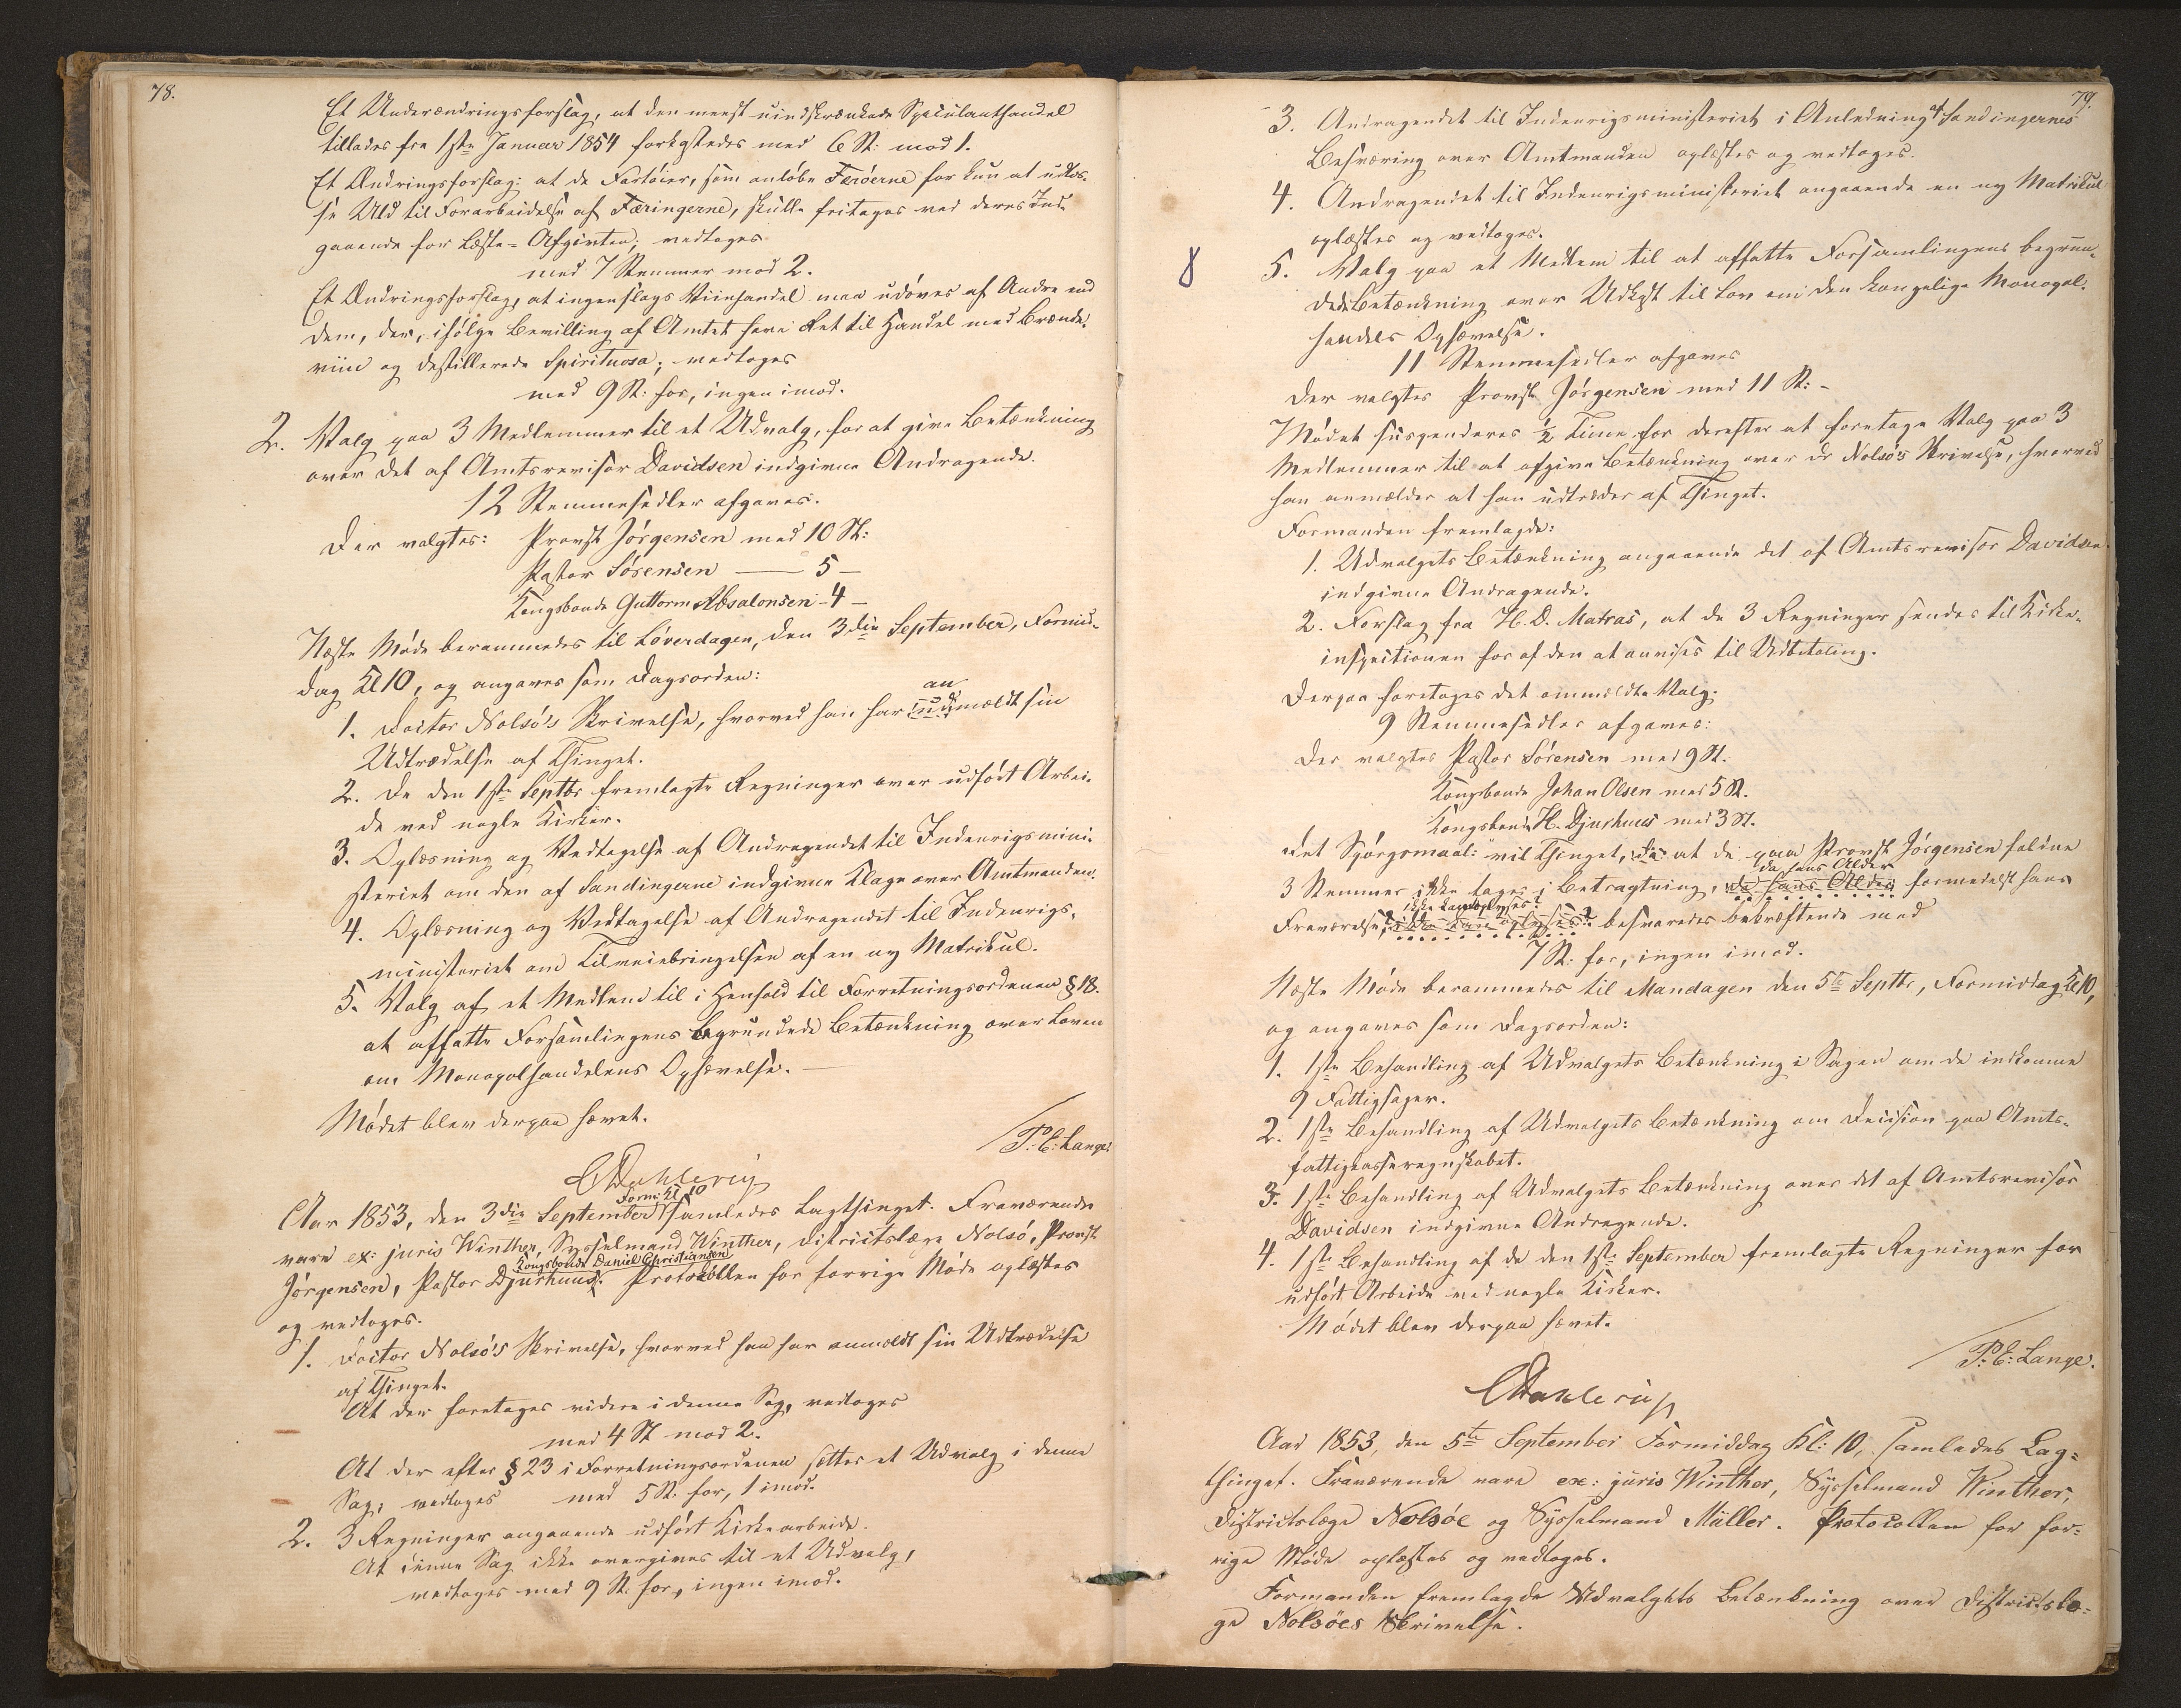 78.
Et Underændringsforslag, at den meest uindskrænkede Speculanthandel
tillades fra 1ste Januar 1854 forkastedes med 6 St: mod 1.
Et Ændringsforslag: at de Fartöier, som anlöbe Færöerne for kun at udlos-
se Uld til Forarbeidelse af Færingerne, skulle fritages ved deres Ind-
gaaende for Læste-Afgiften; vedtoges
med 7 Stemmer mod 2.
Et Ændringsforslag, at ingenslags Viinhandel maa udöves af Andre end
dem, der, ifölge Bevilling af Amtet have Ret til Handel med Brænde-
viin og destillerede Spirituosa; vedtoges
med 9 St: for, ingen imod.
2. Valg paa 3 Medlemmer til et Udvalg, for at give Betænkning
over det af Amtsrevisor Davidsen indgivne Andragende.
12 Stemmesedler afgaves.
Der valgtes: Provst Jörgensen med 10 St:
Pastor Sörensen — 5 —
Kongsbonde Guttorm Absalonsen - 4 —
Næste Möde berammedes til Löverdagen, den 3die September, Formid-
dag Kl 10, og angaves som Dagsorden:
1. Doctor Nolsö's Skrivelse, hvorved han har an meldt sin
Udtrædelse af Thinget.
2. De den 1ste Septbr fremlagte Regninger over udfört Arbei-
de ved nogle Kirker.
3. Oplæsning og Vedtagelse af Andragendet til Indenrigsmini-
steriet om den af Sandingerne indgivne Klage over Amtmanden.
4. Oplæsning og Vedtagelse af Andragendet til Indenrigs-
ministeriet om Tilveiebringelsen af en ny Matrikul.
5. Valg af et Medlem til i Henhold til Forretningsordenen § 18.
at affatte Forsamlingens begrundede Betænkning over Loven
om Monopolhandelens Ophævelse. —
Mödet blev derpaa hævet.
P: E: Lange.
CDahlerup
Form: Kl 10
Aar 1853, den 3die September samledes Lagthinget. Fraværende
vare ex: juris Winther, Sysselmand Winther, Districtslæge Nolsö, Provst
Kongsbonde Daniel Christiansen
Jörgensen, Pastor Djurhuus. Protokollen for forrige Möde oplæstes
og vedtoges.
1. Doctor Nolsö's Skrivelse, hvorved han har anmeldt sin Udtrædelse
af Thinget.
At der foretages videre i denne Sag, vedtoges
med 4 St mod 2.
At der efter § 23 i Forretningsordenen sættes et Udvalg i denne
Sag; vedtoges med 5 St. for, 1 imod.
2. 3 Regninger angaaende udfört Kirkearbeide.
At denne Sag ikke overgives til et Udvalg,
vedtoges med 9 St. for, ingen imod.
79.
3. Andragendet til Indenrigsministeriet i Anledning af Sandingernes
Besværing over Amtmanden oplæstes og vedtoges.
4. Andragendet til Indenrigsministeriet angaaende en ny Matrikul
oplæstes og vedtoges.
8
5. Valg paa et Medlem til at affatte Forsamlingens begrun-
dede Betænkning over Udkast til Lov om den kongelige Monopol-
handels Ophævelse.
11 Stemmesedler afgaves
Der valgtes Provst Jörgensen med 11 St: -
Mödet suspenderes ½ Time for derefter at foretage Valg paa 3
Medlemmer til at afgive Betænkning over Dr Nolsö's Skrivelse, hvorved
han anmelder at han udtræder af Thinget.
Formanden fremlagde:
1. Udvalgets Betænkning angaaende det af Amtsrevisor Davidsen
indgivne Andragende.
2. Forslag fra H. D. Matras, at de 3 Regninger sendes til Kirke-
inspectionen for af den at anvises til Udbetaling.
Derpaa foretoges det ommeldte Valg.
9 Stemmesedler afgaves:
Der valgtes Pastor Sörensen med 9 St.
Kongsbonde Johan Olsen med 5 St.
Kongsbonde H. Djurhuus med 3 St.
Det Spörgsmaal: "vil Thinget, at de paa Provst Jörgensen faldne
da hans Alder
3 Stemmer ikke tages i Betragtning, da hans Alder formedelst hans
ikke kan oplyses?
Fraværelse, ikke kan oplyses?" besvaredes bekræftende med
7 St: for, ingen imod.
Næste Möde berammedes til Mandagen den 5te Septbr, Formiddag Kl 10,
og angaves som Dagsorden:
1. 1ste Behandling af Udvalgets Betænkning i Sagen om de indkomne
9 Fattigsager.
2. 1ste Behandling af Udvalgets Betænkning om Decision paa Amts-
fattigkasseregnskabet.
3. 1ste Behandling af Udvalgets Betænkning over det af Amtsrevisor
Davidsen indgivne Andragende.
4. 1ste Behandling af de den 1ste September fremlagte Regninger for
udfört Arbeide ved nogle Kirker.
Mödet blev derpaa hævet.
P: E: Lange.
CDahlerup
Aar 1853, den 5te September Formiddag Kl: 10, samledes Lag-
thinget. Fraværende vare ex: juris Winther, Sysselmand Winther,
Districtslæge Nolsöe og Sysselmand Müller. Protocollen for for-
rige Möde oplæstes og vedtoges.
Formanden fremlagde Udvalgets Betænkning over Districtslæ-
ge Nolsöes Skrivelse.